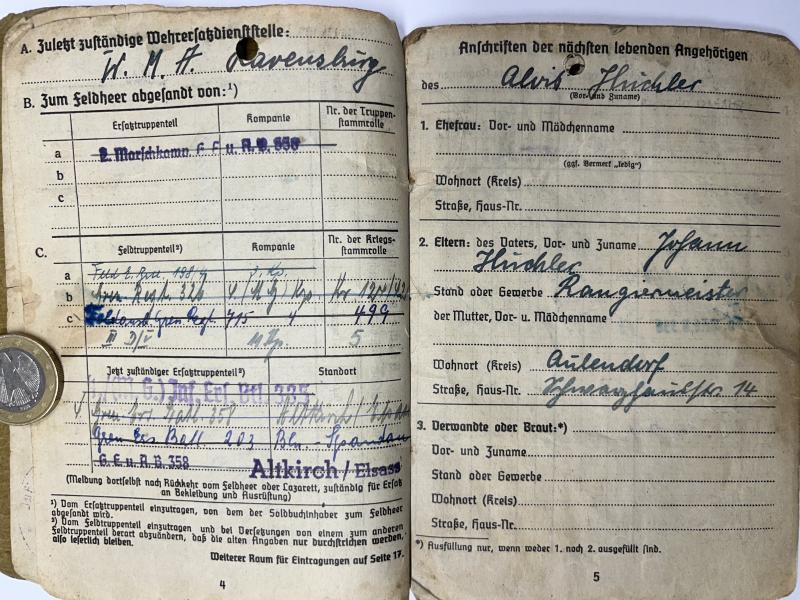 A. Zuletzt zuständige Wehrersatzdienststelle:
W. M. A. Ravensburg
B. Zum Feldheer abgesandt von:¹)
Ersatztruppenteil
Kompanie
Nr. der Truppenstammrolle
a
2. Marschkomp. G. E. u. A. B. 358
b
c
C.
Feldtruppenteil²)
Kompanie
Nr. der Kriegsstammrolle
a
b Gren. Regt. 326
c Gren. Regt. 715 4 499
5
Jetzt zuständiger Ersatztruppenteil²)
Standort
(M. G.) Inf. Ers. Btl. 335
358
Gren Ers Batl 203 Bln - Spandau
G. E. u. A. B. 358
Altkirch / Elsass
(Meldung dortselbst nach Rückkehr vom Feldheer oder Lazarett, zuständig für Ersatz
an Bekleidung und Ausrüstung)
¹) Vom Ersatztruppenteil einzutragen, von dem der Soldbuchinhaber zum Feldheer
abgesandt wird.
²) Vom Feldtruppenteil einzutragen und bei Versetzungen von einem zum anderen
Feldtruppenteil derart abzuändern, daß die alten Angaben nur durchstrichen werden,
also leserlich bleiben.
Weiterer Raum für Eintragungen auf Seite 17.
4
Anschriften der nächsten lebenden Angehörigen
des Alois Huchler
(Vor- und Zuname)
1. Ehefrau: Vor- und Mädchenname
(ggf. Vermerk „ledig")
Wohnort (Kreis)
Straße, Haus-Nr.
2. Eltern: des Vaters, Vor- und Zuname Johann
Huchler
Stand oder Gewerbe Rangiermeister
der Mutter, Vor- u. Mädchenname
Wohnort (Kreis) Aulendorf
Straße, Haus-Nr. 14
3. Verwandte oder Braut:*)
Vor- und Zuname
Stand oder Gewerbe
Wohnort (Kreis)
Straße, Haus-Nr.
*) Ausfüllung nur, wenn weder 1. noch 2. ausgefüllt sind.
5